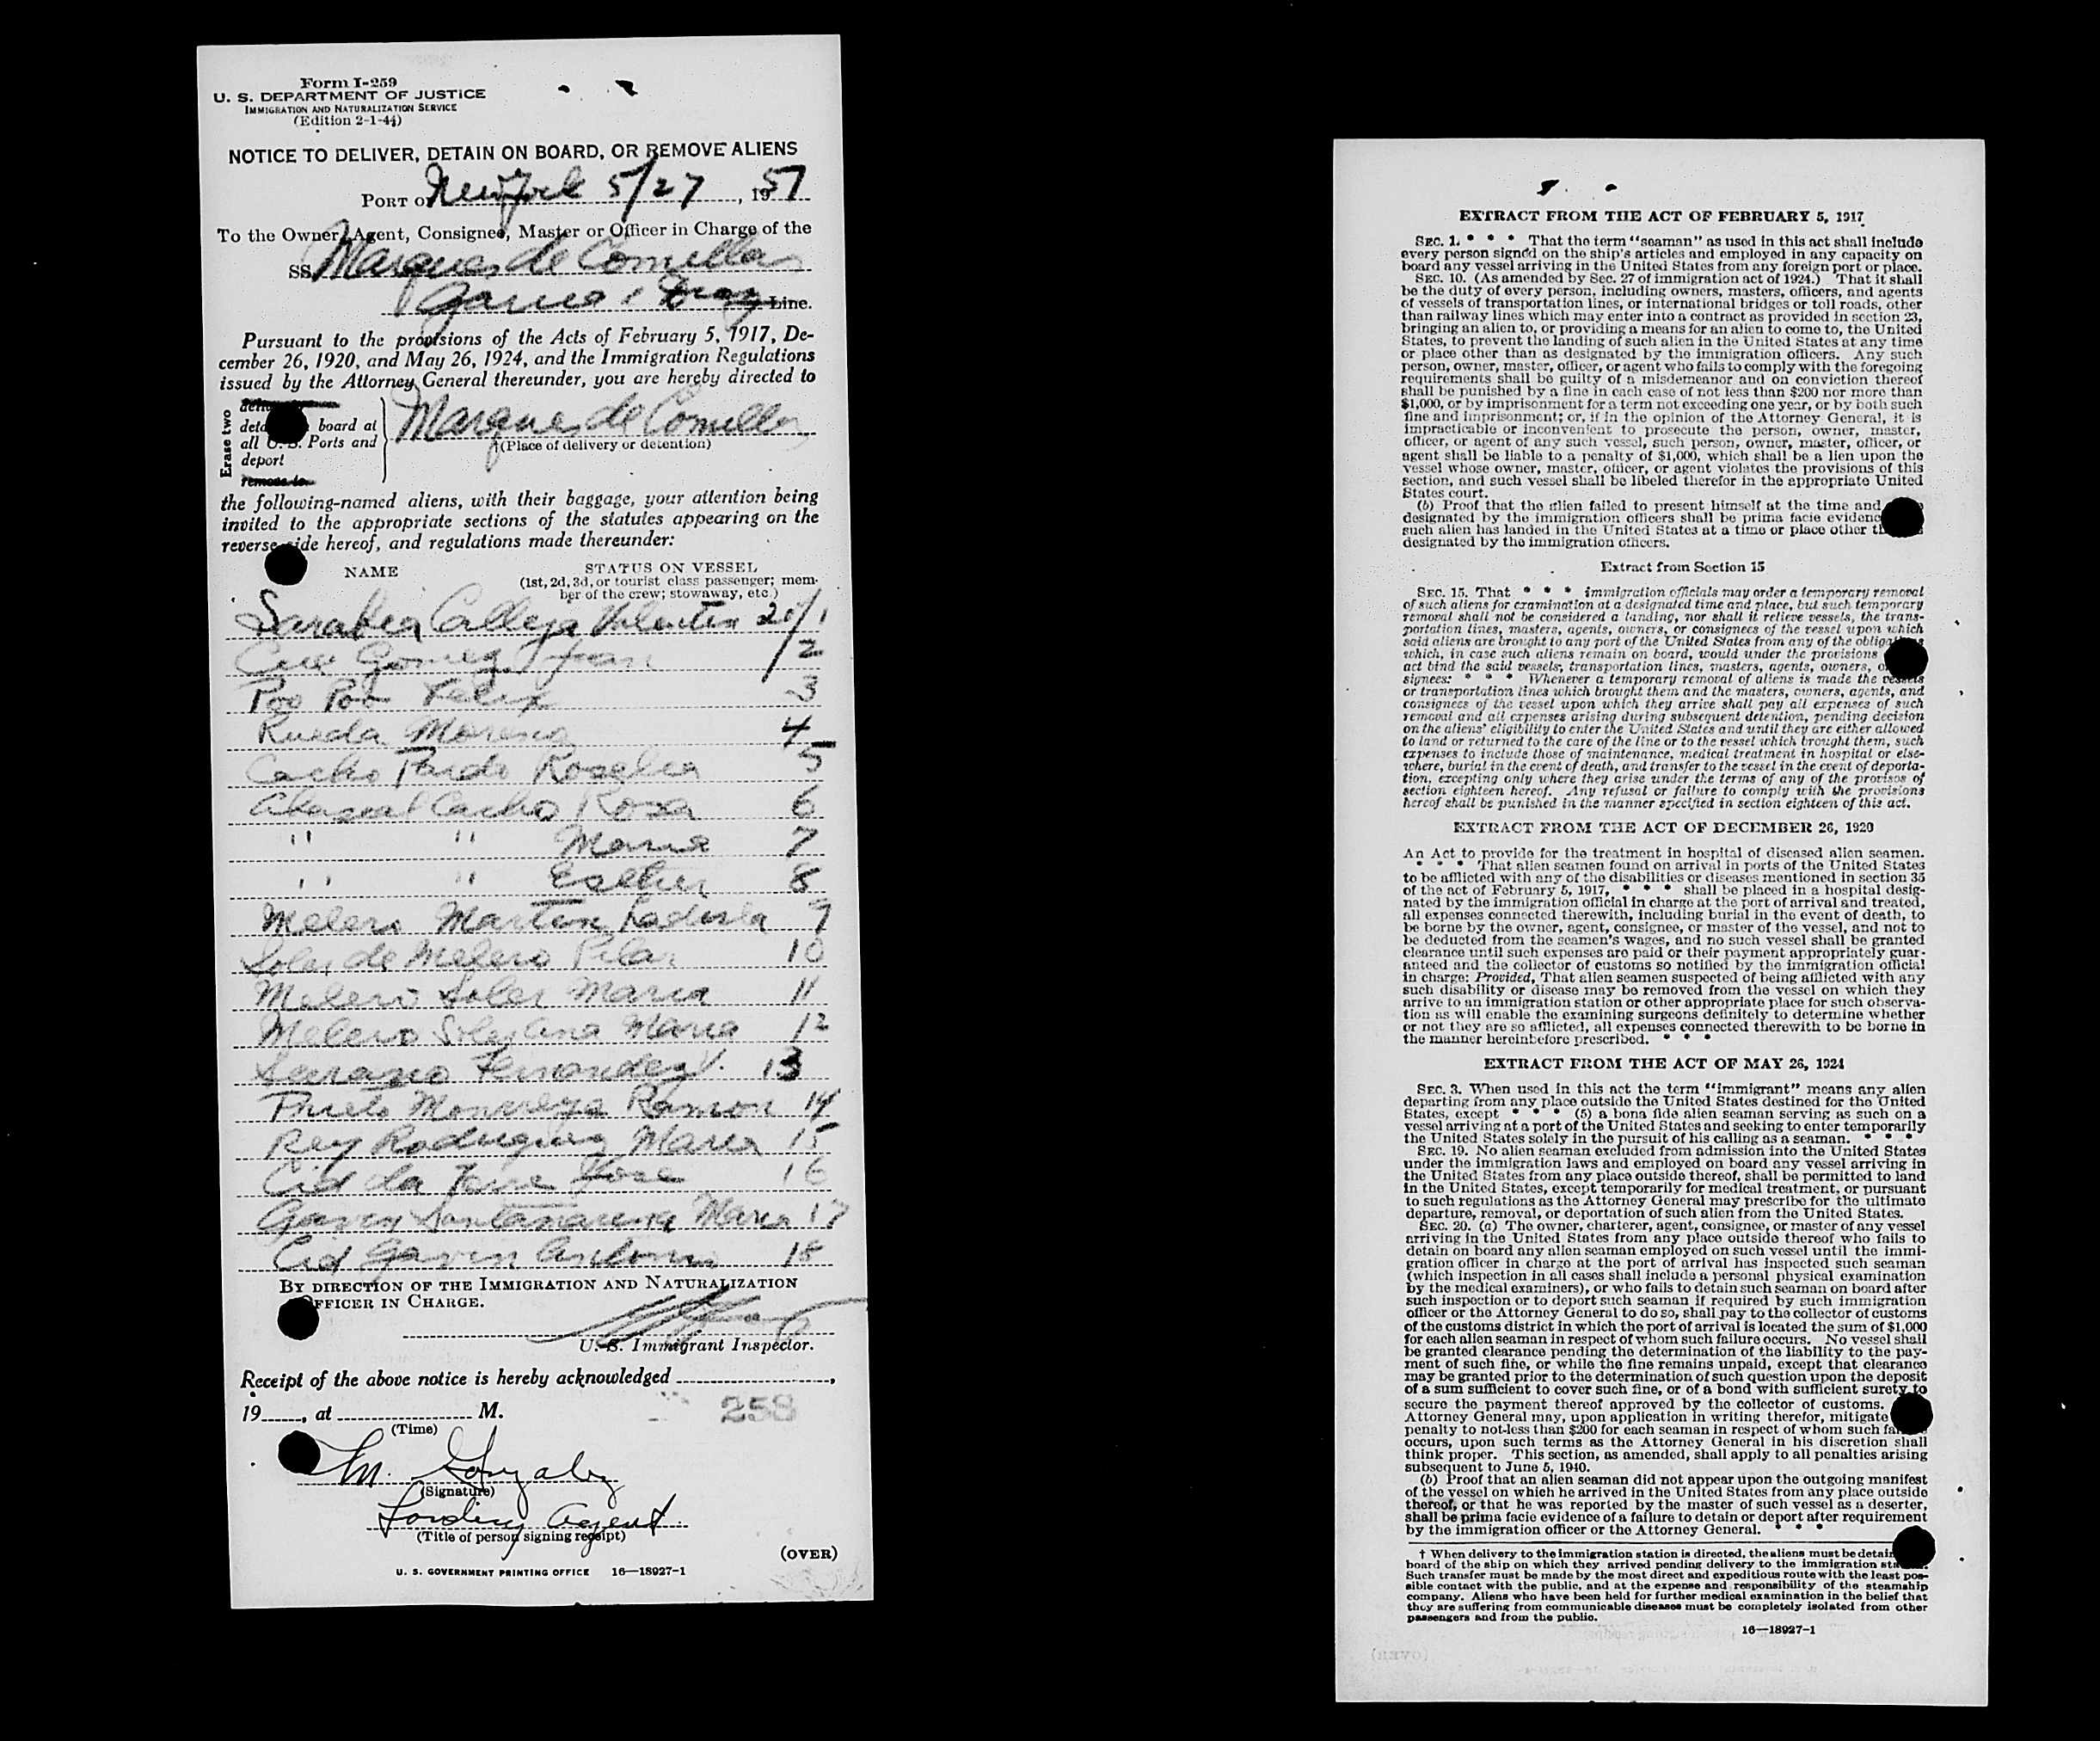 Form I-259
U. S. DEPARTMENT OF JUSTICE
IMMIGRATION AND NATURALIZATION SERVICE
(Edition 2-1-44)
NOTICE TO DELIVER, DETAIN ON BOARD, OR REMOVE ALIENS
PORT OF New York 5/27, 1951
To the Owner, Agent, Consignee, Master or Officer in Charge of the
SS Marques de Comillas
Garcia & Diaz Line.
Pursuant to the provisions of the Acts of February 5, 1917, De-
cember 26, 1920, and May 26, 1924, and the Immigration Regulations
issued by the Attorney General thereunder, you are hereby directed to
Erase two
board at
all U. S. Ports and
deport
remove to
Marques de Comillas
†(Place of delivery or detention)
the following-named aliens, with their baggage, your attention being
invited to the appropriate sections of the statutes appearing on the
reverse side hereof, and regulations made thereunder:
NAME STATUS ON VESSEL
(1st, 2d, 3d, or tourist class passenger; mem-
ber of the crew; stowaway, etc.)
Sarabia Calleja Valentin 20/1
Cue Gomez Juan /2
Poo Poo Felix 3
Rueda Moreno 4
Cacho Pardo Rosalia 5
Abascal Cacho Rosa 6
" " Maria 7
" " Esther 8
Melero Martin 9
Soler de Melero Pilar 10
Melero Soler Maria 11
Melero Soler Ana Maria 12
Serrano Fernandez V. 13
Prieto Ramon 14
Rey Rodriguez Maria 15
Cid da Jose 16
Gavin Santamarina Maria 17
Cid Gavin Antonio 18
BY DIRECTION OF THE IMMIGRATION AND NATURALIZATION
OFFICER IN CHARGE.
U. S. Immigrant Inspector.
Receipt of the above notice is hereby acknowledged ,
19 , at M.
258
(Time)
M. Gonzalez
(Signature)
Landing Agent
(Title of person signing receipt)
(OVER)
U. S. GOVERNMENT PRINTING OFFICE 16—18927-1
EXTRACT FROM THE ACT OF FEBRUARY 5, 1917
SEC. 1. * * * That the term "seaman" as used in this act shall include
every person signed on the ship's articles and employed in any capacity on
board any vessel arriving in the United States from any foreign port or place.
SEC. 10. (As amended by Sec. 27 of immigration act of 1924.) That it shall
be the duty of every person, including owners, masters, officers, and agents
of vessels of transportation lines, or international bridges or toll roads, other
than railway lines which may enter into a contract as provided in section 23,
bringing an alien to, or providing a means for an alien to come to, the United
States, to prevent the landing of such alien in the United States at any time
or place other than as designated by the immigration officers. Any such
person, owner, master, officer, or agent who fails to comply with the foregoing
requirements shall be guilty of a misdemeanor and on conviction thereof
shall be punished by a fine in each case of not less than $200 nor more than
$1,000, or by imprisonment for a term not exceeding one year, or by both such
fine and imprisonment; or, if in the opinion of the Attorney General, it is
impracticable or inconvenient to prosecute the person, owner, master,
officer, or agent of any such vessel, such person, owner, master, officer, or
agent shall be liable to a penalty of $1,000, which shall be a lien upon the
vessel whose owner, master, officer, or agent violates the provisions of this
section, and such vessel shall be libeled therefor in the appropriate United
States court.
(b) Proof that the alien failed to present himself at the time and
designated by the immigration officers shall be prima facie evidenc
such alien has landed in the United States at a time or place other th
designated by the immigration officers.
Extract from Section 15
SEC. 15. That * * * immigration officials may order a temporary removal
of such aliens for examination at a designated time and place, but such temporary
removal shall not be considered a landing, nor shall it relieve vessels, the trans-
portation lines, masters, agents, owners, or consignees of the vessel upon which
said aliens are brought to any port of the United States from any of the obligations
which, in case such aliens remain on board, would under the provisions
act bind the said vessels, transportation lines, masters, agents, owners, o
signees: * * * Whenever a temporary removal of aliens is made the vessels
or transportation lines which brought them and the masters, owners, agents, and
consignees of the vessel upon which they arrive shall pay all expenses of such
removal and all expenses arising during subsequent detention, pending decision
on the aliens' eligibility to enter the United States and until they are either allowed
to land or returned to the care of the line or to the vessel which brought them, such
expenses to include those of maintenance, medical treatment in hospital or else-
where, burial in the event of death, and transfer to the vessel in the event of deporta-
tion, excepting only where they arise under the terms of any of the provisos of
section eighteen hereof. Any refusal or failure to comply with the provisions
hereof shall be punished in the manner specified in section eighteen of this act.
EXTRACT FROM THE ACT OF DECEMBER 26, 1920
An Act to provide for the treatment in hospital of diseased alien seamen.
* * * That alien seamen found on arrival in ports of the United States
to be afflicted with any of the disabilities or diseases mentioned in section 35
of the act of February 5, 1917, * * * shall be placed in a hospital desig-
nated by the immigration official in charge at the port of arrival and treated,
all expenses connected therewith, including burial in the event of death, to
be borne by the owner, agent, consignee, or master of the vessel, and not to
be deducted from the seamen's wages, and no such vessel shall be granted
clearance until such expenses are paid or their payment appropriately guar-
anteed and the collector of customs so notified by the immigration official
in charge: Provided, That alien seamen suspected of being afflicted with any
such disability or disease may be removed from the vessel on which they
arrive to an immigration station or other appropriate place for such observa-
tion as will enable the examining surgeons definitely to determine whether
or not they are so afflicted, all expenses connected therewith to be borne in
the manner hereinbefore prescribed. * * *
EXTRACT FROM THE ACT OF MAY 26, 1924
SEC. 3. When used in this act the term "immigrant" means any alien
departing from any place outside the United States destined for the United
States, except * * * (5) a bona fide alien seaman serving as such on a
vessel arriving at a port of the United States and seeking to enter temporarily
the United States solely in the pursuit of his calling as a seaman. * * *
SEC. 19. No alien seaman excluded from admission into the United States
under the immigration laws and employed on board any vessel arriving in
the United States from any place outside thereof, shall be permitted to land
in the United States, except temporarily for medical treatment, or pursuant
to such regulations as the Attorney General may prescribe for the ultimate
departure, removal, or deportation of such alien from the United States.
SEC. 20. (a) The owner, charterer, agent, consignee, or master of any vessel
arriving in the United States from any place outside thereof who fails to
detain on board any alien seaman employed on such vessel until the immi-
gration officer in charge at the port of arrival has inspected such seaman
(which inspection in all cases shall include a personal physical examination
by the medical examiners), or who fails to detain such seaman on board after
such inspection or to deport such seaman if required by such immigration
officer or the Attorney General to do so, shall pay to the collector of customs
of the customs district in which the port of arrival is located the sum of $1,000
for each alien seaman in respect of whom such failure occurs. No vessel shall
be granted clearance pending the determination of the liability to the pay-
ment of such fine, or while the fine remains unpaid, except that clearance
may be granted prior to the determination of such question upon the deposit
of a sum sufficient to cover such fine, or of a bond with sufficient surety to
secure the payment thereof approved by the collector of customs.
Attorney General may, upon application in writing therefor, mitigate
penalty to not less than $200 for each seaman in respect of whom such fa
occurs, upon such terms as the Attorney General in his discretion shall
think proper. This section, as amended, shall apply to all penalties arising
subsequent to June 5, 1940.
(b) Proof that an alien seaman did not appear upon the outgoing manifest
of the vessel on which he arrived in the United States from any place outside
thereof, or that he was reported by the master of such vessel as a deserter,
shall be prima facie evidence of a failure to detain or deport after requirement
by the immigration officer or the Attorney General. * * *
† When delivery to the immigration station is directed, the aliens must be detain
board of the ship on which they arrived pending delivery to the immigration sta
Such transfer must be made by the most direct and expeditious route with the least pos-
sible contact with the public, and at the expense and responsibility of the steamship
company. Aliens who have been held for further medical examination in the belief that
they are suffering from communicable diseases must be completely isolated from other
passengers and from the public.
16—18927-1